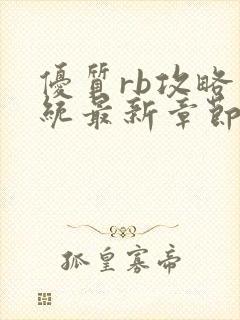 優質rb攻略
統最新章節
孤皇寡帝